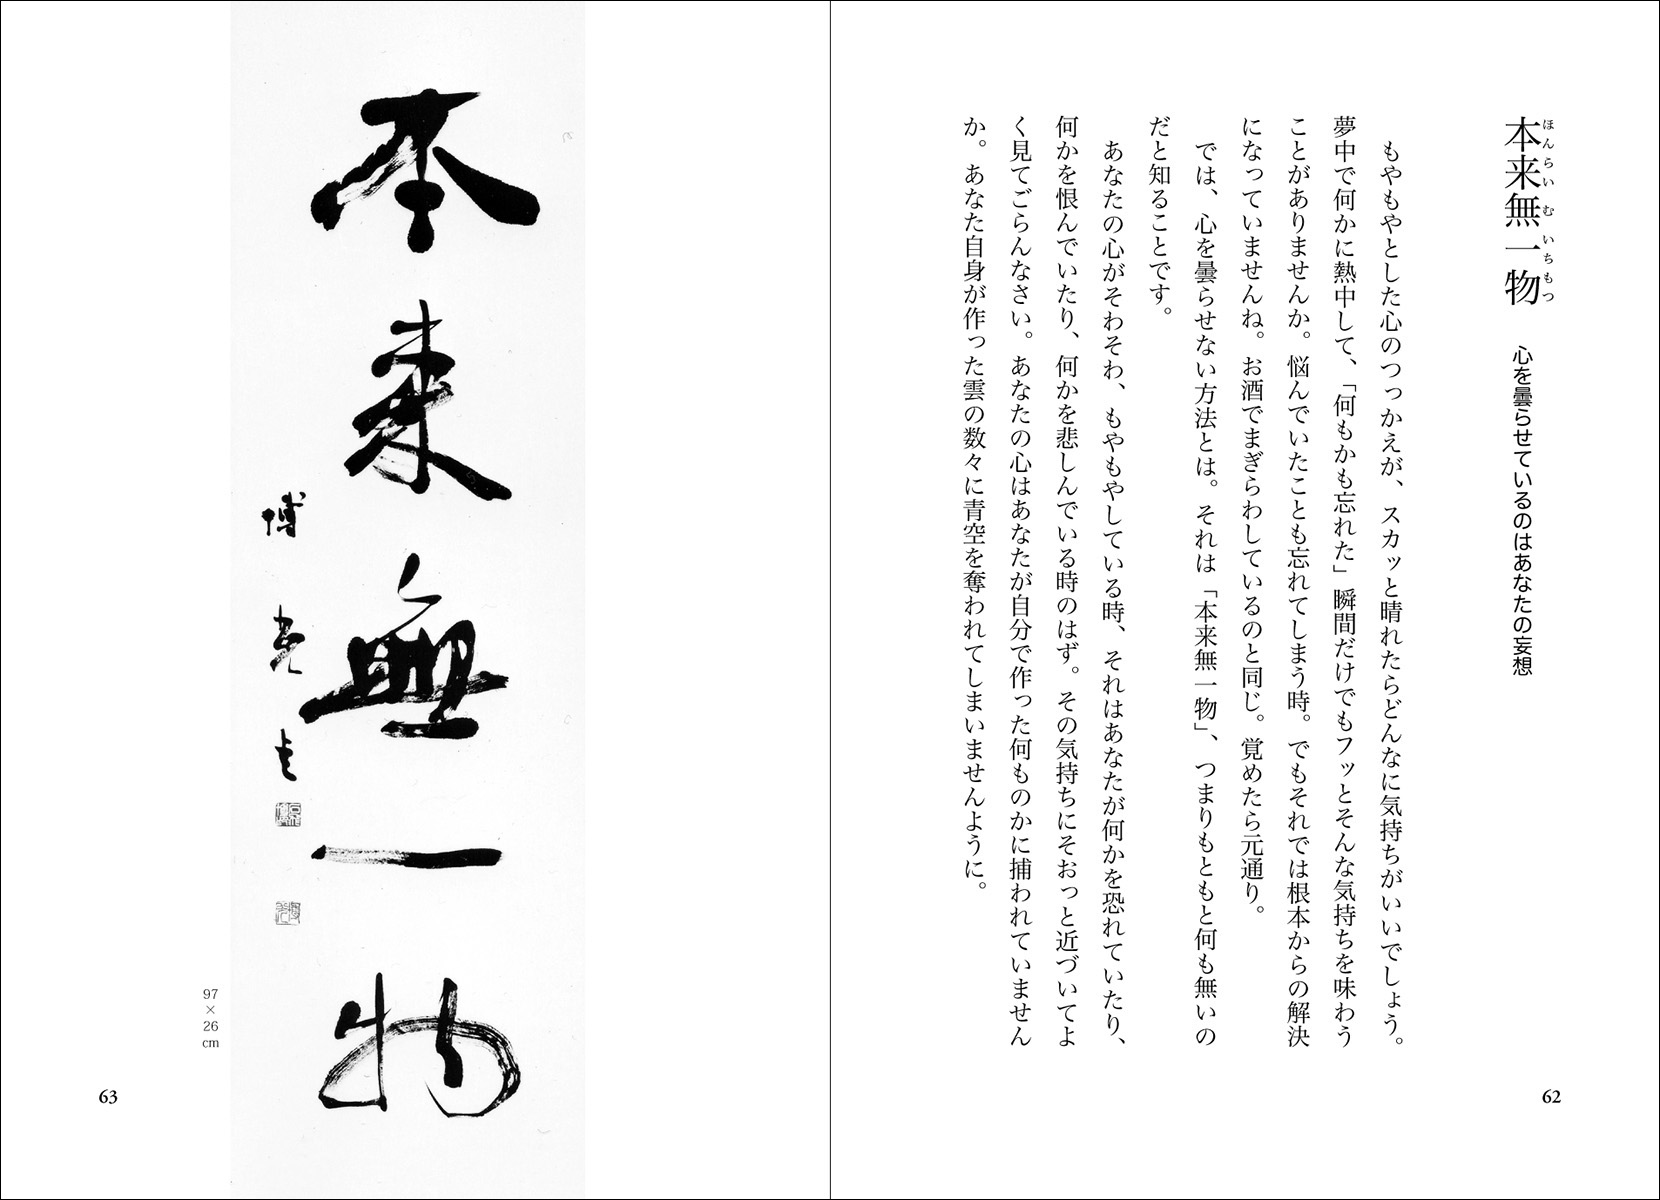 本来無一物
ほんらいむいちもつ
心を曇らせているのはあなたの妄想
もやもやとした心のつっかえが、スカッと晴れたらどんなに気持ちがいいでしょう。
夢中で何かに熱中して、「何もかも忘れた」瞬間だけでもフッとそんな気持ちを味わう
ことがありませんか。悩んでいたことも忘れてしまう時。でもそれでは根本からの解決
になっていませんね。お酒でまぎらわしているのと同じ。覚めたら元通り。
では、心を曇らせない方法とは。それは「本来無一物」、つまりもともと何も無いの
だと知ることです。
あなたの心がそわそわ、もやもやしている時、それはあなたが何かを恐れていたり、
何かを恨んでいたり、何かを悲しんでいる時のはず。その気持ちにそおっと近づいてよ
く見てごらんなさい。あなたの心はあなたが自分で作った何ものかに捕われていません
か。あなた自身が作った雲の数々に青空を奪われてしまいませんように。
62
本来無一物
97×26cm
63